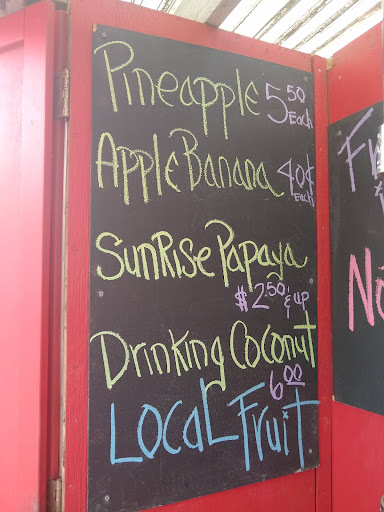 Pineapple 5.50 Each
Apple Banana 40¢ Each
Sunrise Papaya
$2.50 & up
Drinking Coconut
6.00
Local Fruit